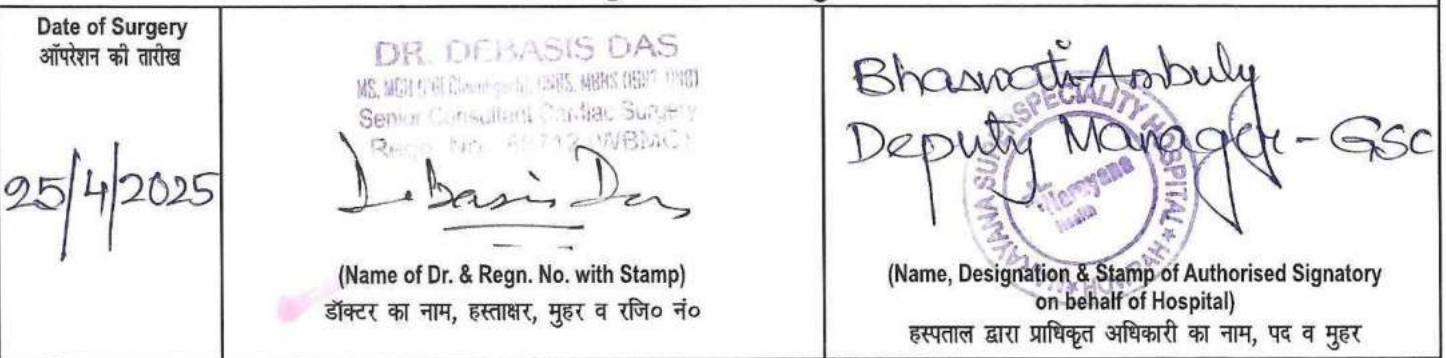 Date of Surgery
ऑपरेशन की तारीख
25/4/2025
DR. DEBASIS DAS
Senior Consultant Cardiac Surgery
Regn. No. (WBMC)
Debasis Das
(Name of Dr. & Regn. No. with Stamp)
डॉक्टर का नाम, हस्ताक्षर, मुहर व रजि० नं०
Bhaswati Ambuly
Deputy Manager - GSC
NARAYANA SUPERSPECIALITY HOSPITAL * HOWRAH *
Narayana
Health
(Name, Designation & Stamp of Authorised Signatory
on behalf of Hospital)
हस्पताल द्वारा प्राधिकृत अधिकारी का नाम, पद व मुहर